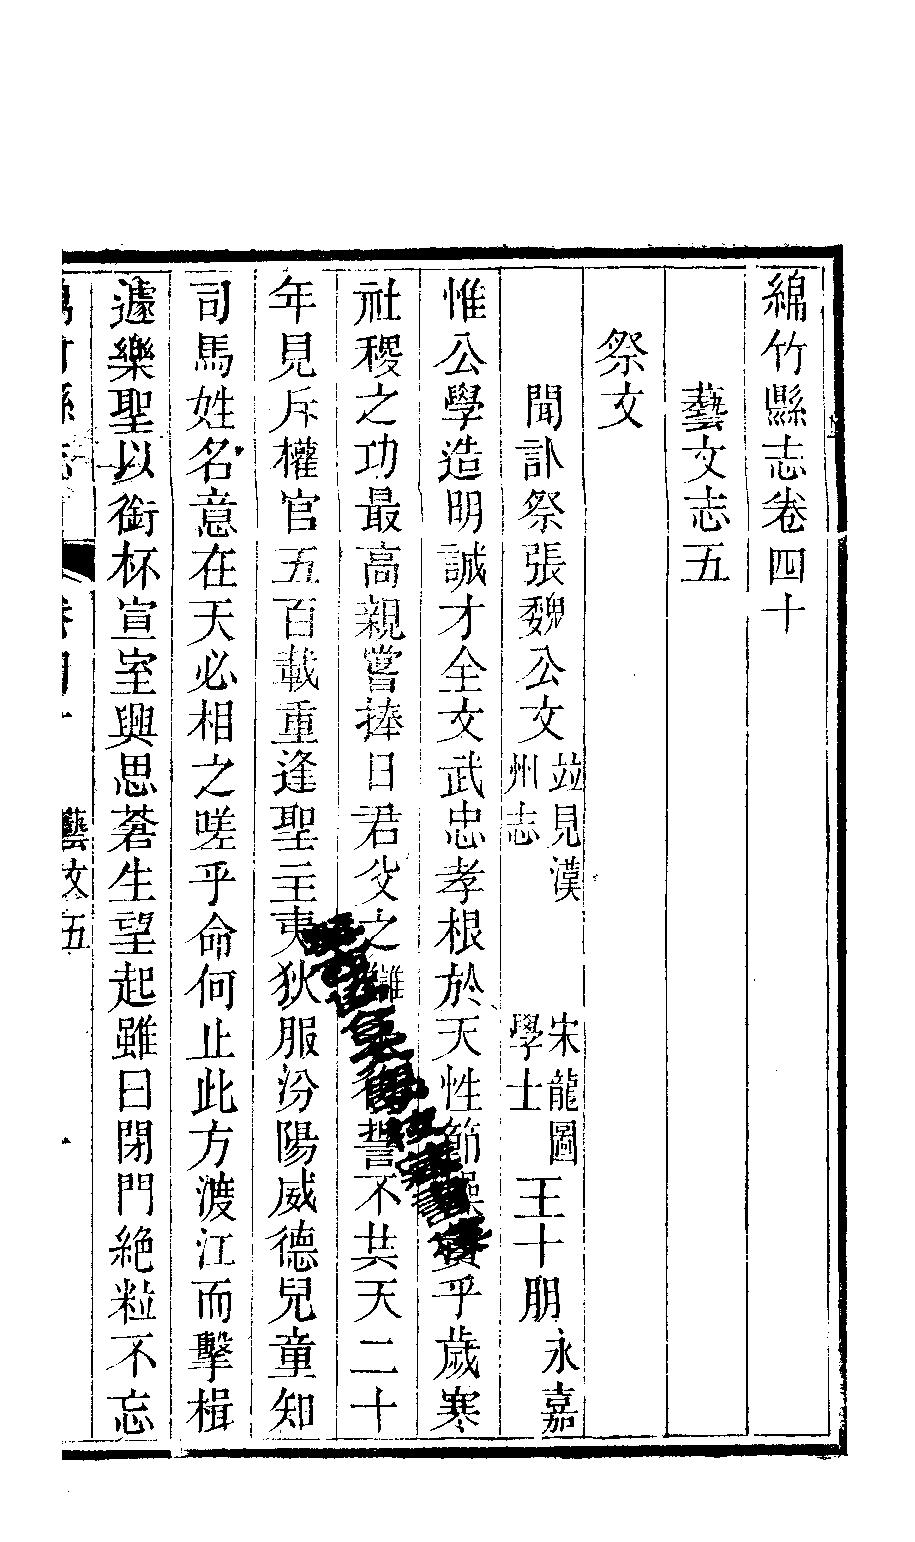 綿竹縣志卷四十
藝文志五
祭文
聞訃祭張魏公文 竝見漢州志 宋龍圖學士 王十朋 永嘉
惟公學造明誠才全文武忠孝根於天性節乎歲寒
社稷之功最高親嘗捧日君父之讎誓不共天二十
年見斥權官五百載重逢聖主夷狄服汾陽威德兒童知
司馬姓名意在天必相之嗟乎命何止此方渡江而擊楫
遽樂聖以銜杯宣室興思蒼生望起雖曰閉門絶粒不忘
藝文五